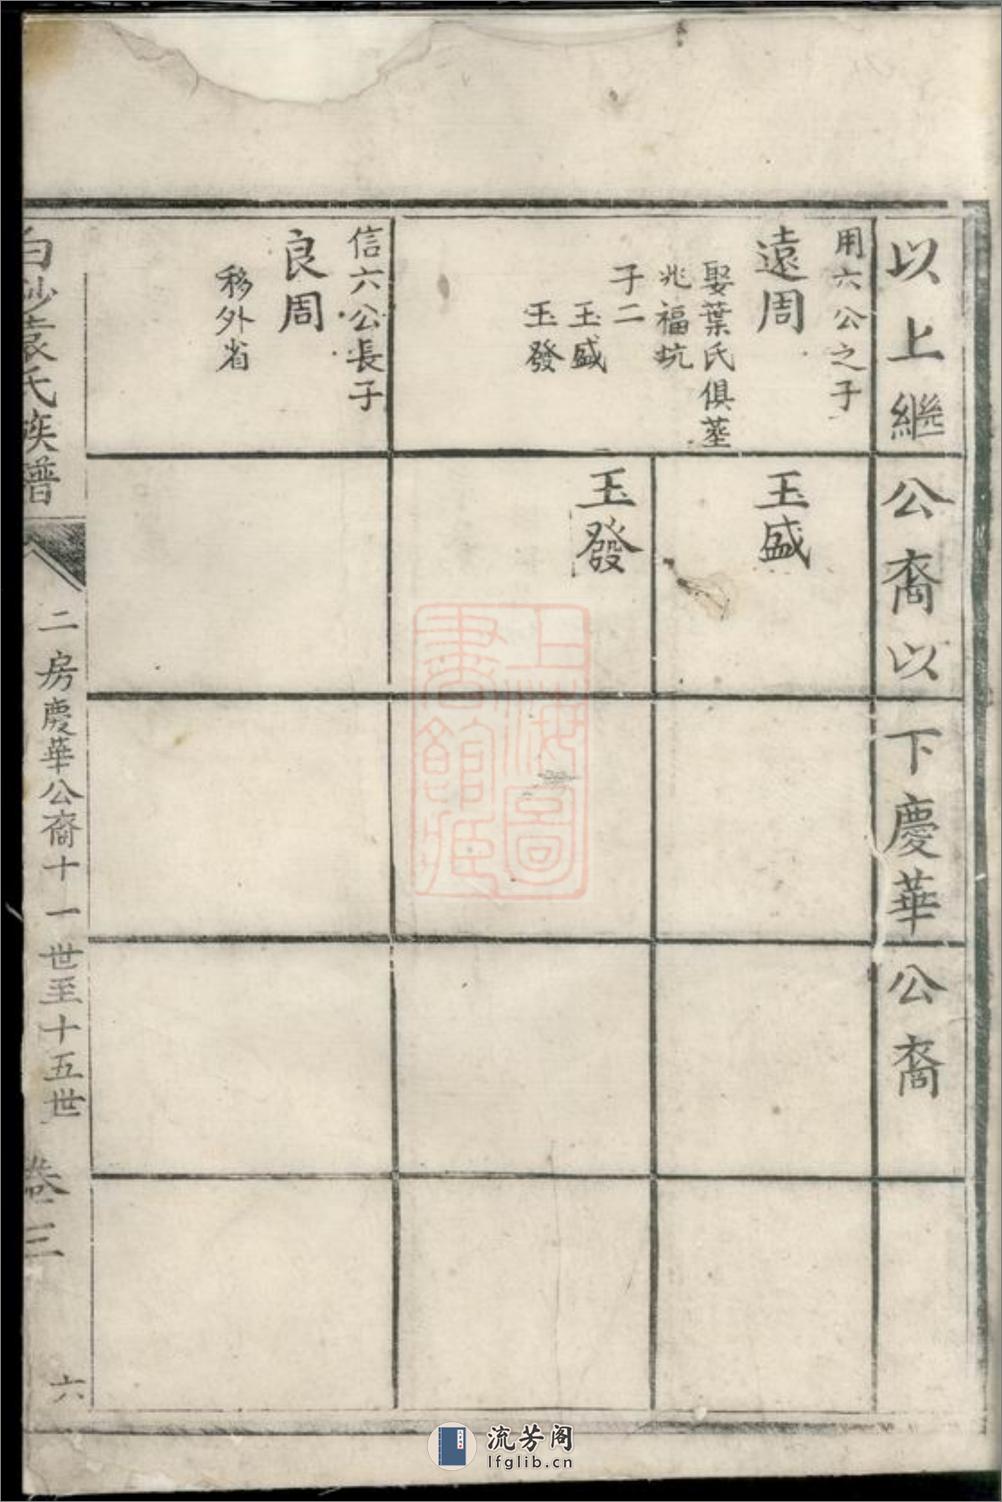 以上繼公裔以下慶華公裔
用六公之子
遠周
娶葉氏俱塟
兆福坑
子二
玉盛
玉發
玉盛
玉發
信六公長子
良周
移外省
白沙袁氏族譜
二房慶華公裔十一世至十五世
卷三
六
上海圖書館藏
流芳阁
lfglib.cn